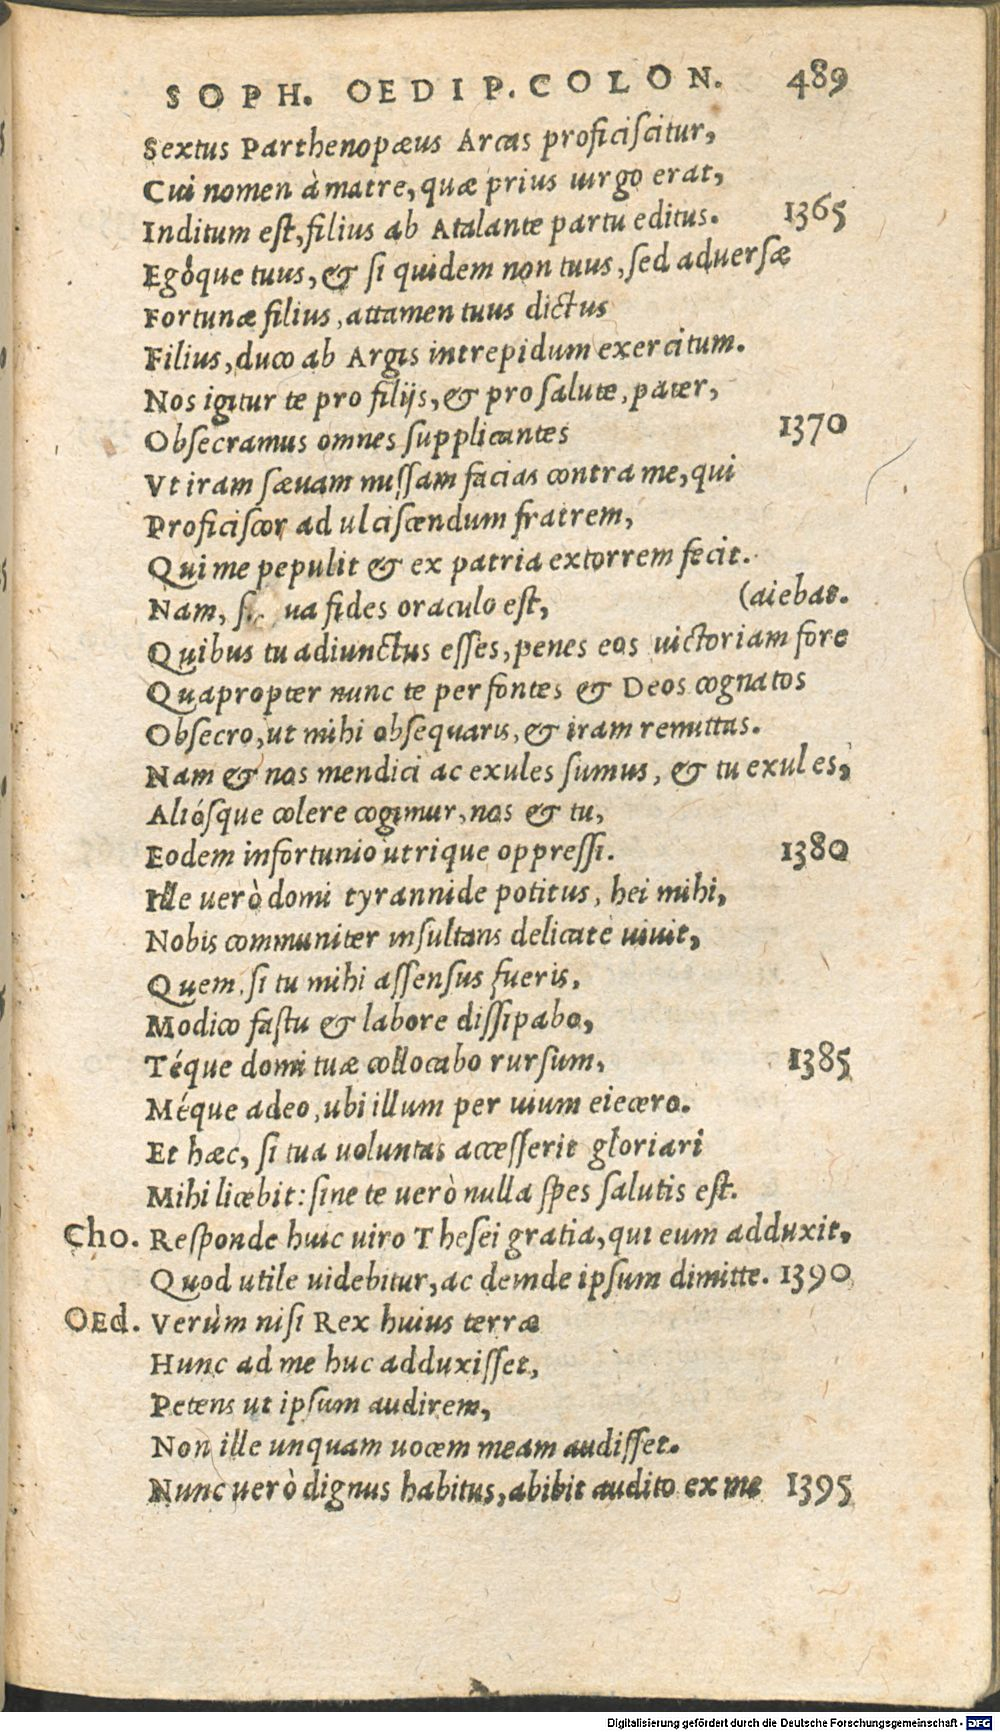 SOPH. OEDIP. COLON. 489
Sextus Parthenopæus Arcas proficiſcitur,
Cui nomen à matre, quæ prius uirgo erat,
Inditum eſt, filius ab Atalante partu editus. 1365
Egóque tuus, & ſi quidem non tuus, ſed aduerſæ
Fortunæ filius, attamen tuus dictus
Filius, duco ab Argis intrepidum exercitum.
Nos igitur te pro filijs, & pro ſalute, pater,
Obſecramus omnes ſupplicantes 1370
Vt iram ſæuam miſſam facias contra me, qui
Proficiſcor ad ulciſcendum fratrem,
Qui me pepulit & ex patria extorrem fecit.
Nam, ua fides oraculo eſt, (aiebat.
Quibus tu adiunctus eſſes, penes eos uictoriam fore
Quapropter nunc te per fontes & Deos cognatos
Obſecro, ut mihi obſequaris, & iram remittas.
Nam & nos mendici ac exules ſumus, & tu exul es,
Alióſque colere cogimur, nos & tu,
Eodem infortunio utrique oppreſſi. 1380
Ille uerò domi tyrannide potitus, hei mihi,
Nobis communiter inſultans delicatè uiuit,
Quem, ſi tu mihi aſſenſus fueris,
Modico faſtu & labore diſſipabo,
Téque domi tuæ collocabo rurſum, 1385
Méque adeo, ubi illum per uium eiecero.
Et hæc, ſi tua uoluntas acceſſerit gloriari
Mihi licebit: ſine te uerò nulla ſpes ſalutis eſt.
Cho. Reſponde huic uiro Theſei gratia, qui eum adduxit,
Quod utile uidebitur, ac deinde ipſum dimitte. 1390
OEd. Verùm niſi Rex huius terræ
Hunc ad me huc adduxiſſet,
Petens ut ipſum audirem,
Non ille unquam uocem meam audiſſet.
Nunc uerò dignus habitus, abibit audito ex me 1395
Digitalisierung gefördert durch die Deutsche Forschungsgemeinschaft - DFG